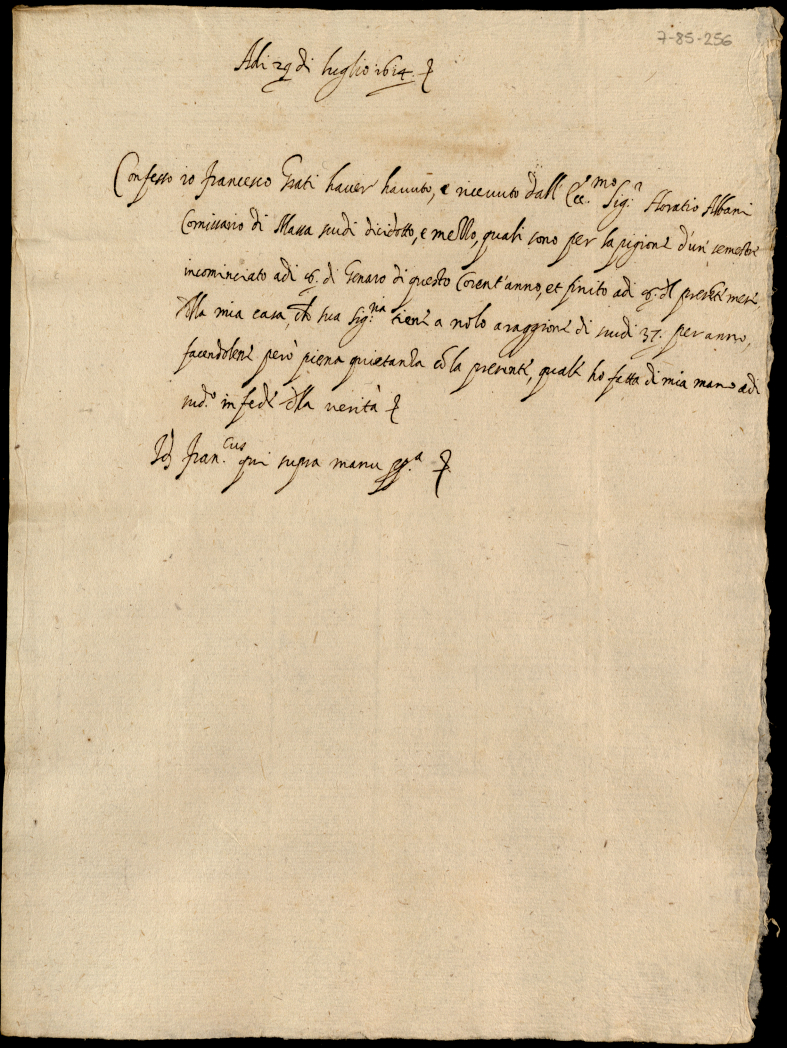 7-85-256
Adi 29 di luglio 1614.
Confesso io Francesco Grati haver havuto, e ricevuto dall' Ecc.mo Sig.r Horatio Albani
Comissario di Massa scudi dicidotto, e mezzo, quali sono per la pigione d'un semestre
incominciato adi 8. di Genaro di questo corent'anno, et finito adi 8. del presente mese
della mia casa, che sua Sig.ria tiene a nolo a raggione di scudi 37. per anno,
facendolene però piena quietanza cō la presente, quale ho fatta di mia mano adi
sud.o in fede della verità
Id. Fran.cus qui supra manu pp.a